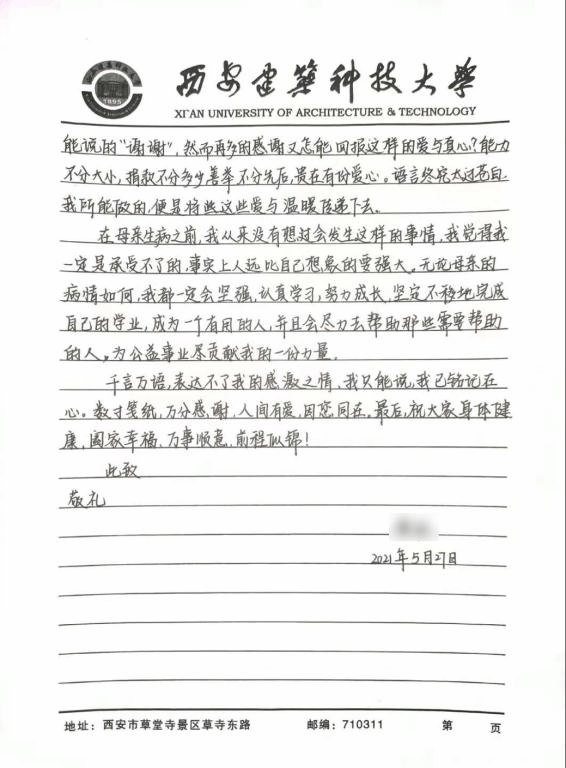 1895
西安建筑科技大学
XI'AN UNIVERSITY OF ARCHITECTURE & TECHNOLOGY
能说的“谢谢”，然而再多的感谢又怎能回报这样的爱与真心？能力
不分大小，捐款不分多少，善举不分先后，贵在有份爱心。语言终究太过苍白，
我所能做的，便是将这些爱与温暖传递下去。
在母亲生病之前，我从来没有想过会发生这样的事情，我觉得我
一定是承受不了的，事实上人远比自己想象的要强大。无论母亲的
病情如何，我都一定会坚强，认真学习，努力成长，坚定不移地完成
自己的学业，成为一个有用的人，并且会尽力去帮助那些需要帮助
的人。为公益事业尽贡献我的一份力量。
千言万语，表达不了我的感激之情、我只能说，我已铭记在
心。数寸笺纸，万分感谢，人间有爱，因您同在。最后，祝大家身体健
康，阖家幸福、万事顺意、前程似锦！
此致
敬礼
2021年5月27日
地址：西安市草堂寺景区草寺东路 邮编：710311 第 页